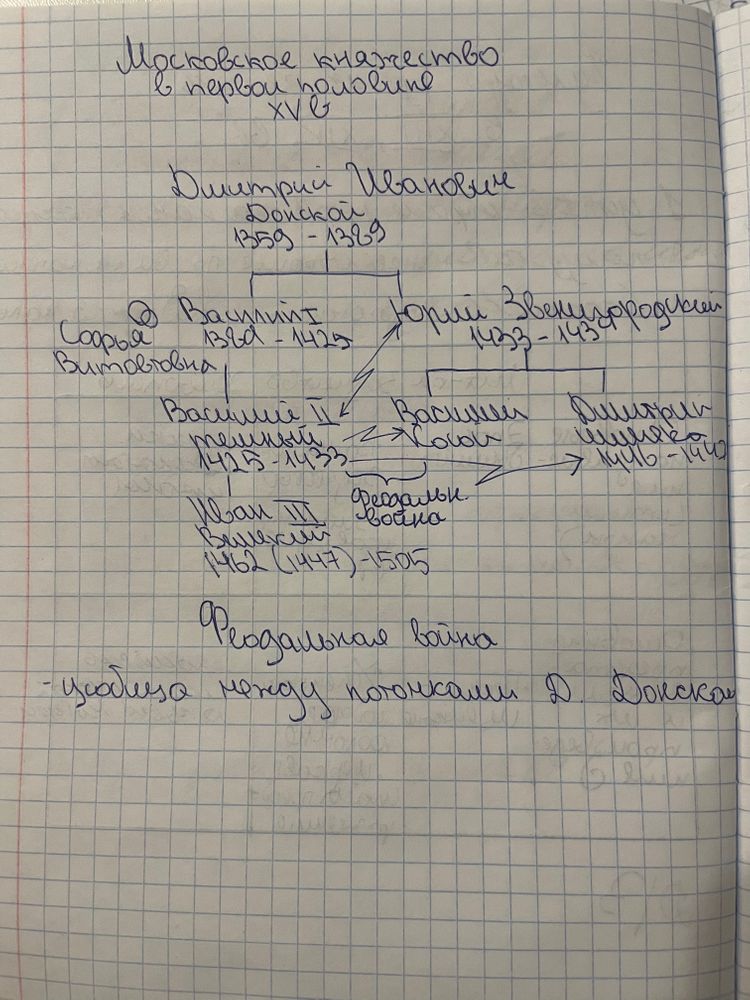 Московское княжество
в первой половине
XV в
Дмитрий Иванович
Донской
1359 - 1389
Василий I
1389 - 1425
Софья
Витовтовна
Юрий Звенигородский
1433 - 1434
Василий II
темный
1425 - 1433
Василий
Косой
Дмитрий
Шемяка
1446 - 1447
Феодальн.
война
Иван III
Великий
1462 (1447) - 1505
Феодальная война
- усобица между потомками Д. Донского